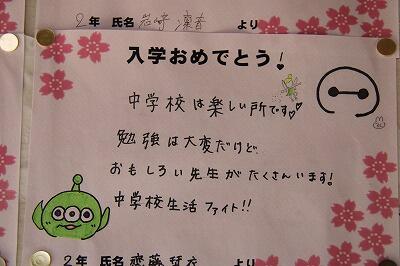 2年 氏名 岩崎 凜音 より
入学おめでとう!
中学校は楽しい所です♡♡
勉強は大変だけど、
おもしろい先生がたくさんいます!
中学校生活ファイト!!
2年 氏名 齋藤 より